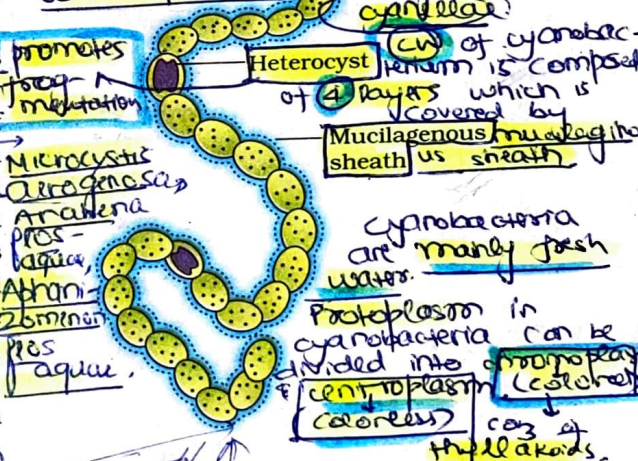 cyanellae.
promotes
frag-
mentation
CW of cyanobac-
terium is composed
of 4 layers which is
covered by
Heterocyst
Mucilagenous
sheath
mucilagino
us sheath
Microcystis
aerogenosa,
Anabena
flos-
aquae,
Aphani-
zomenon
flos
aquae.
Cyanobacteria
are manly fresh
water.
Protoplasm in
cyanobacteria can be
divided into chromoplas
(colored)
& centroplasm
(colorless)
coz of
thyllakoids.